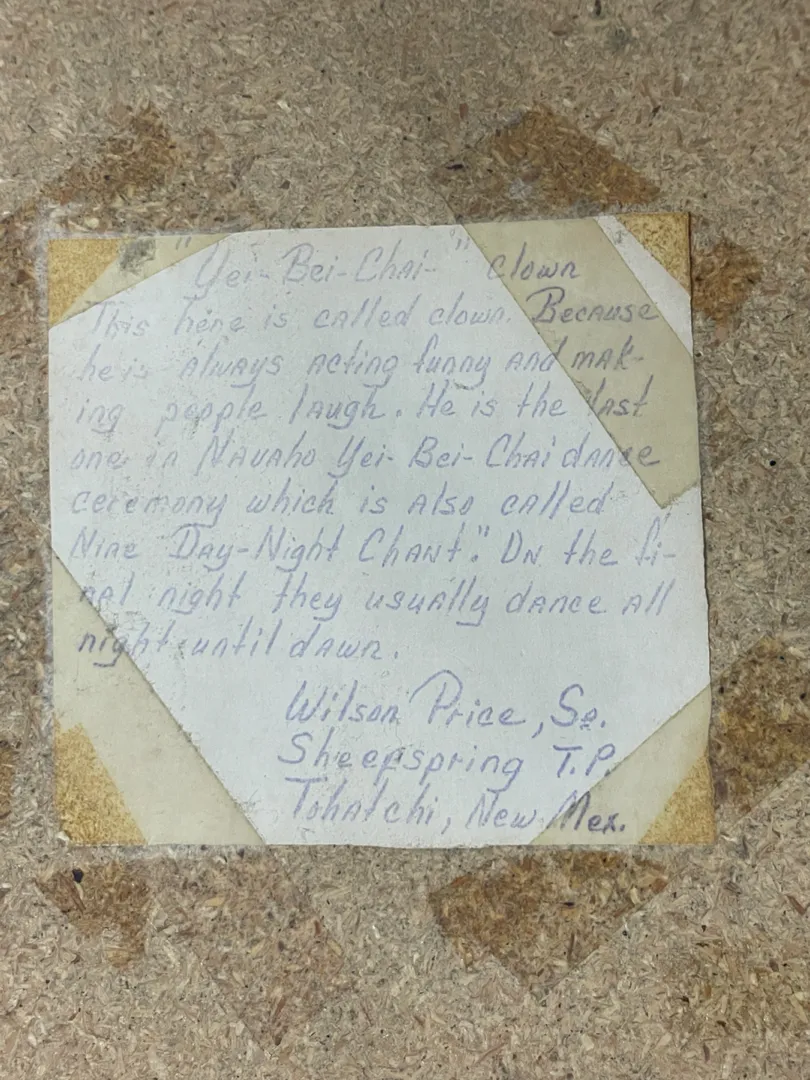 "Yei-Bei-Chai-" clown
This here is called clown. Because
he is always acting funny and mak-
ing people laugh. He is the last
one in Navaho Yei-Bei-Chai dance
ceremony which is also called
Nine Day-Night Chant". On the fi-
nal night they usually dance all
night until dawn.
Wilson Price, Sr.
Sheepspring T.P.
Tohatchi, New Mex.